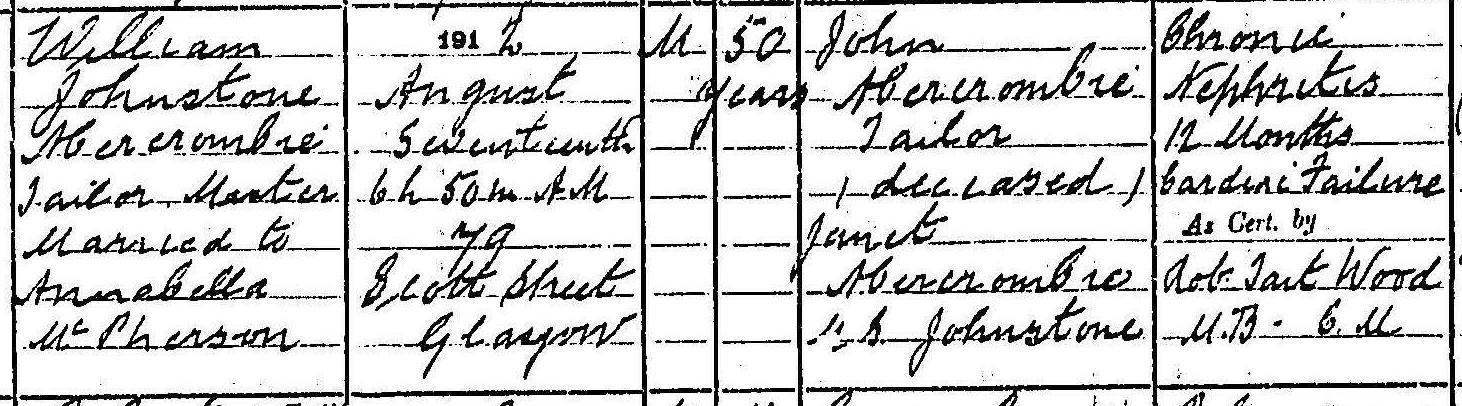 William
Johnstone
Abercrombie
Tailor Master
Married to
Annabella
Mc Pherson
1912
August
Seventeenth
6h 50m AM
79
Scott Street
Glasgow
M
50
years
John
Abercrombie
Tailor
(deceased)
Janet
Abercrombie
M.S Johnstone
Chronic
Nephritis
12 Months
Cardiac Failure
As Cert. by
Rob. Tait Wood
M.B. C.M